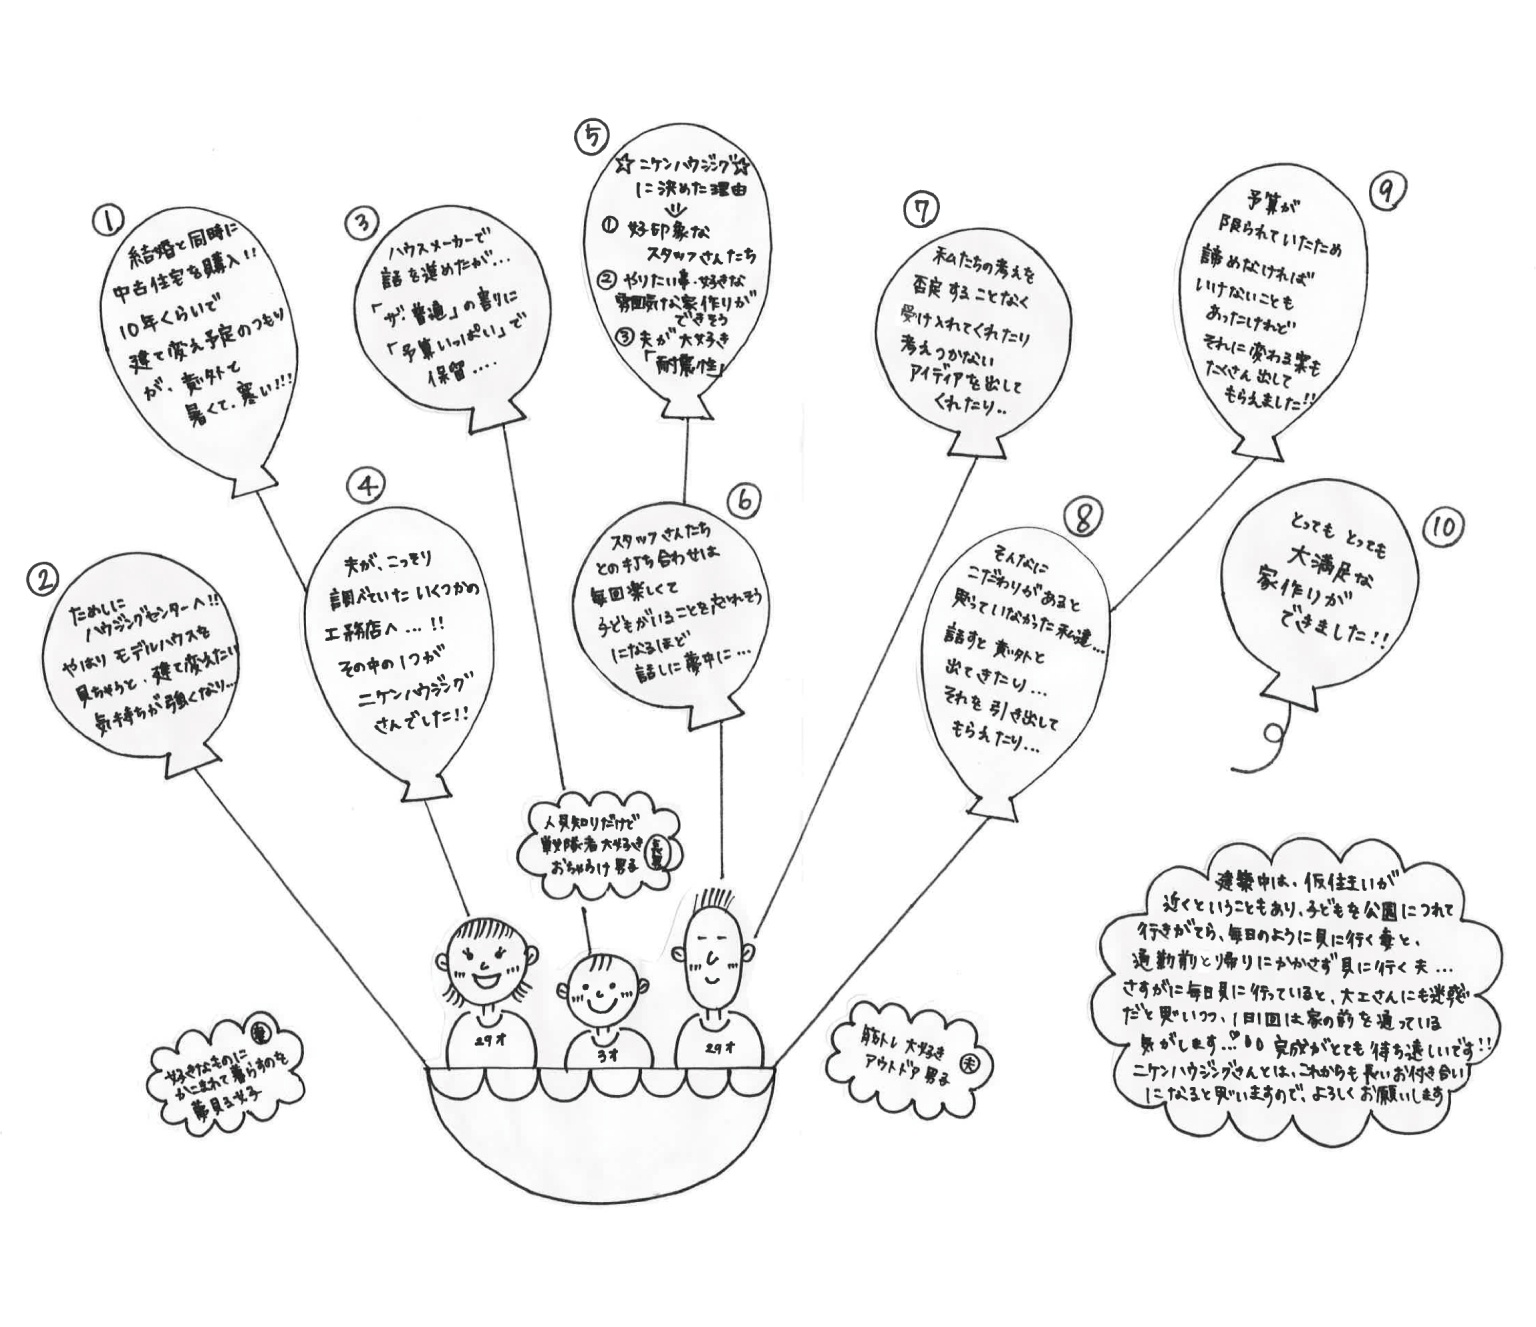 ①
結婚と同時に
中古住宅を購入!!
10年くらいで
建て変え予定のつもり
が、意外と
暑くて、寒い!!!
②
ためしに
ハウジングセンターへ!!
やはり モデルハウスを
見ちゃうと、建て変えたい
気持ちが強くなり…
③
ハウスメーカーで
話を進めたが…
「ザ・普通」の割りに
「予算いっぱい」で
保留‥‥
④
夫が、こっそり
調べていた いくつかの
工務店へ…!!
その中の1つが
ニケンハウジング
さんでした!!
⑤
☆ニケンハウジング☆
に決めた理由
① 好印象な
スタッフさんたち
② やりたい事・好きな
雰囲気な家作りが
できそう
③ 夫が大好き
「耐震性」
⑥
スタッフさんたち
との打ち合わせは
毎回楽しくて
子どもがいることを忘れそう
になるほど
話しに夢中に…
⑦
私たちの考えを
否定することなく
受け入れてくれたり
考えつかない
アイディアを出して
くれたり‥
⑧
そんなに
こだわりがあると
思っていなかった私達…
話すと意外と
出てきたり…
それを引き出して
もらえたり…
⑨
予算が
限られていたため
諦めなければ
いけないことも
あったけれど
それに変わる案も
たくさん出して
もらえました!!
⑩
とっても とっても
大満足な
家作りが
できました!!
人見知りだけど
戦隊者大好き
おちゃらけ男子
29才
3才
29才
妻
好きなものに
かこまれて暮らすのを
夢見る女子
筋トレ大好き
アウトドア男子
夫
建築中は、仮住まいが
近くということもあり、子どもを公園につれて
行きがてら、毎日のように見に行く妻と、
通勤前と帰りにかかさず見に行く夫…
さすがに毎日見に行っていると、大工さんにも迷惑
だと思いつつ、1日1回は家の前を通っている
気がします…♡ 完成がとても待ち遠しいです!!
ニケンハウジングさんとは、これからも長いお付き合い
になると思いますので、よろしくお願いします